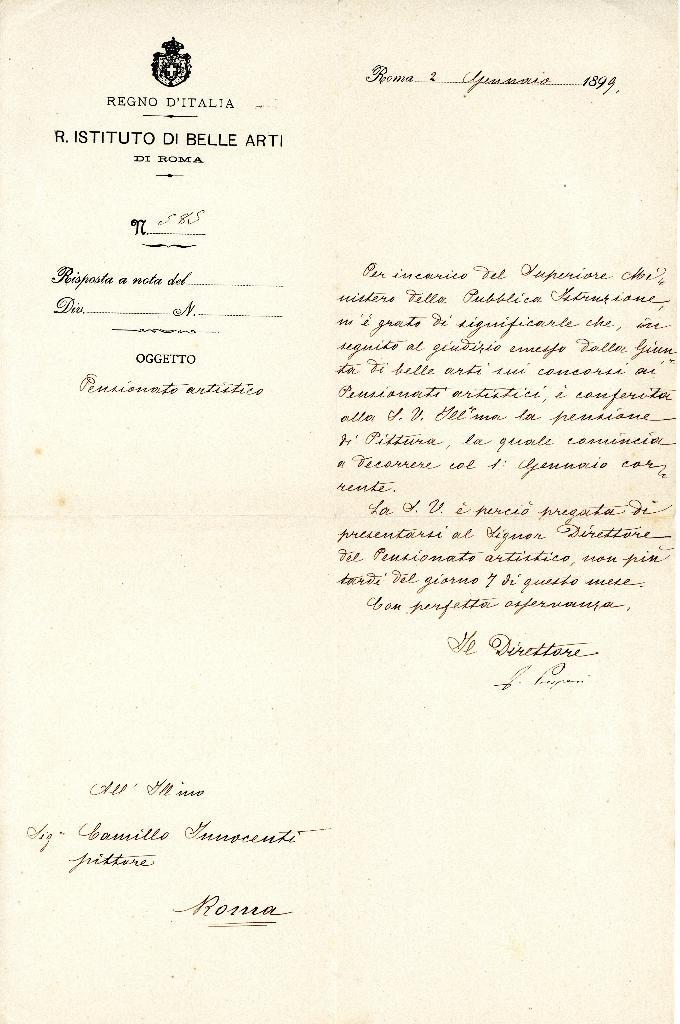 REGNO D'ITALIA
R. ISTITUTO DI BELLE ARTI
DI ROMA
N. 585
Risposta a nota del
Div. N.
OGGETTO
Pensionato artistico
Roma 2 Gennaio 1899.
Per incarico del Superiore Mi-
nistero della Pubblica Istruzione,
m'è grato di significarle che, in
seguito al giudizio emesso dalla Giun-
ta di belle arti sui concorsi ai
Pensionati artistici, è conferita
alla S. V. Ill.ma la pensione
di Pittura, la quale comincia
a decorrere col 1° Gennaio cor-
rente.
La S. V. è perciò pregata di
presentarsi al Signor Direttore
del Pensionato artistico, non più
tardi del giorno 7 di questo mese.
Con perfetta osservanza,
Il Direttore
All' Ill'mo
Sig. Camillo Innocenti
pittore
Roma